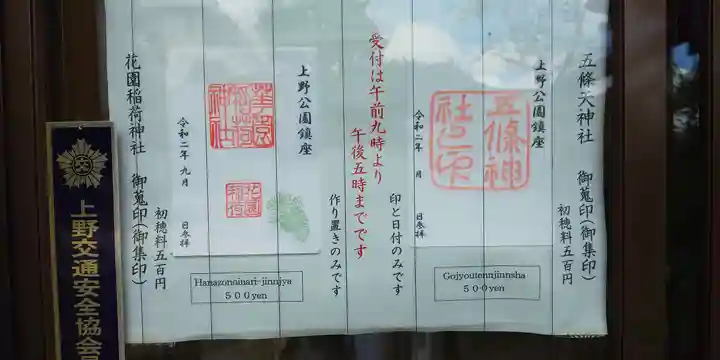 五條天神社 御蒐印(御集印)
初穂料五百円
上野公園鎮座
五條神社之印
令和二年 月 日参拝
Gojyoutennjinnsha
500yen
印と日付のみです
受付は午前九時より
午後五時までです
作り置きのみです
上野公園鎮座
令和二年 九月 日参拝
Hanazonoinari-jinnjya
500yen
花園稲荷神社 御蒐印(御集印)
初穂料五百円
上野交通安全協会